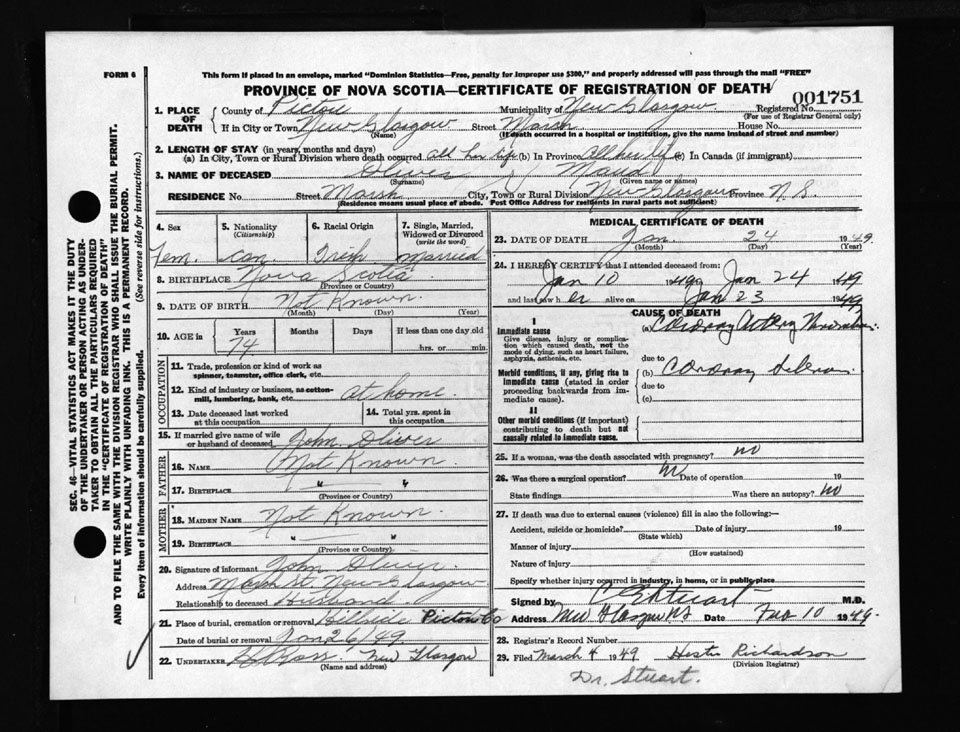 FORM 6
This form if placed in an envelope, marked "Dominion Statistics—Free, penalty for improper use $300," and properly addressed will pass through the mail "FREE"
PROVINCE OF NOVA SCOTIA—CERTIFICATE OF REGISTRATION OF DEATH
001751
1. PLACE OF DEATH
County of Pictou Municipality of New Glasgow Registered No.
(For use of Registrar General only)
If in City or Town New Glasgow Street Marsh House No.
(Name) (If death occurred in a hospital or institution, give the name instead of street and number)
2. LENGTH OF STAY (in years, months and days)
(a) In City, Town or Rural Division where death occurred all her life (b) In Province all her life (c) In Canada (if immigrant)
3. NAME OF DECEASED Oliver
(Surname) (Given name or names)
RESIDENCE No. Street Marsh City, Town or Rural Division New Glasgow Province N. S.
(Residence means usual place of abode. Post Office Address for residents in rural parts not sufficient)
4. Sex Fem.
5. Nationality (Citizenship) Can.
6. Racial Origin Irish
7. Single, Married, Widowed or Divorced (write the word) Married
8. BIRTHPLACE Nova Scotia
(Province or Country)
9. DATE OF BIRTH Not Known.
(Month) (Day) (Year)
10. AGE in Years 74 Months Days If less than one day old
hrs. or min.
OCCUPATION
11. Trade, profession or kind of work as spinner, teamster, office clerk, etc.
12. Kind of industry or business, as cotton-mill, lumbering, bank, etc. at home.
13. Date deceased last worked at this occupation
14. Total yrs. spent in this occupation
15. If married give name of wife or husband of deceased John Oliver
FATHER
16. NAME Not Known.
17. BIRTHPLACE " "
(Province or Country)
MOTHER
18. MAIDEN NAME Not Known.
19. BIRTHPLACE " "
(Province or Country)
20. Signature of informant John Oliver
Address Marsh St. New Glasgow
Relationship to deceased Husband
21. Place of burial, cremation or removal Hillside Pictou Co
Date of burial or removal Jan 26/49
22. UNDERTAKER Ross. New Glasgow
(Name and address)
MEDICAL CERTIFICATE OF DEATH
23. DATE OF DEATH Jan. 24 1949
(Month) (Day) (Year)
24. I HEREBY CERTIFY that I attended deceased from:
Jan 10 1949 Jan 24 1949
and last saw her alive on Jan 23 1949
CAUSE OF DEATH
I
Immediate cause
Give disease, injury or complication which caused death, not the mode of dying, such as heart failure, asphyxia, asthenia, etc.
(a) Coronary Artery
due to
Morbid conditions, if any, giving rise to immediate cause (stated in order proceeding backwards from immediate cause).
(b) Coronary
due to
(c)
II
Other morbid conditions (if important) contributing to death but not causally related to immediate cause.
25. If a woman, was the death associated with pregnancy? no
26. Was there a surgical operation? no Date of operation 19
State findings Was there an autopsy? no
27. If death was due to external causes (violence) fill in also the following:—
Accident, suicide or homicide? Date of injury 19
(State which)
Manner of injury
(How sustained)
Nature of injury
Specify whether injury occurred in industry, in home, or in public place
Signed by Stuart M.D.
Address New Glasgow NS Date Feb 10 1949.
28. Registrar's Record Number
29. Filed March 4 1949 Hester Richardson
(Division Registrar)
Dr. Stuart.
SEC. 46—VITAL STATISTICS ACT MAKES IT THE DUTY
OF THE UNDERTAKER OR PERSON ACTING AS UNDER-
TAKER TO OBTAIN ALL THE PARTICULARS REQUIRED
IN THE "CERTIFICATE OF REGISTRATION OF DEATH"
AND TO FILE THE SAME WITH THE DIVISION REGISTRAR WHO SHALL ISSUE THE BURIAL PERMIT.
WRITE PLAINLY WITH UNFADING INK. THIS IS A PERMANENT RECORD.
Every item of information should be carefully supplied. (See reverse side for instructions.)